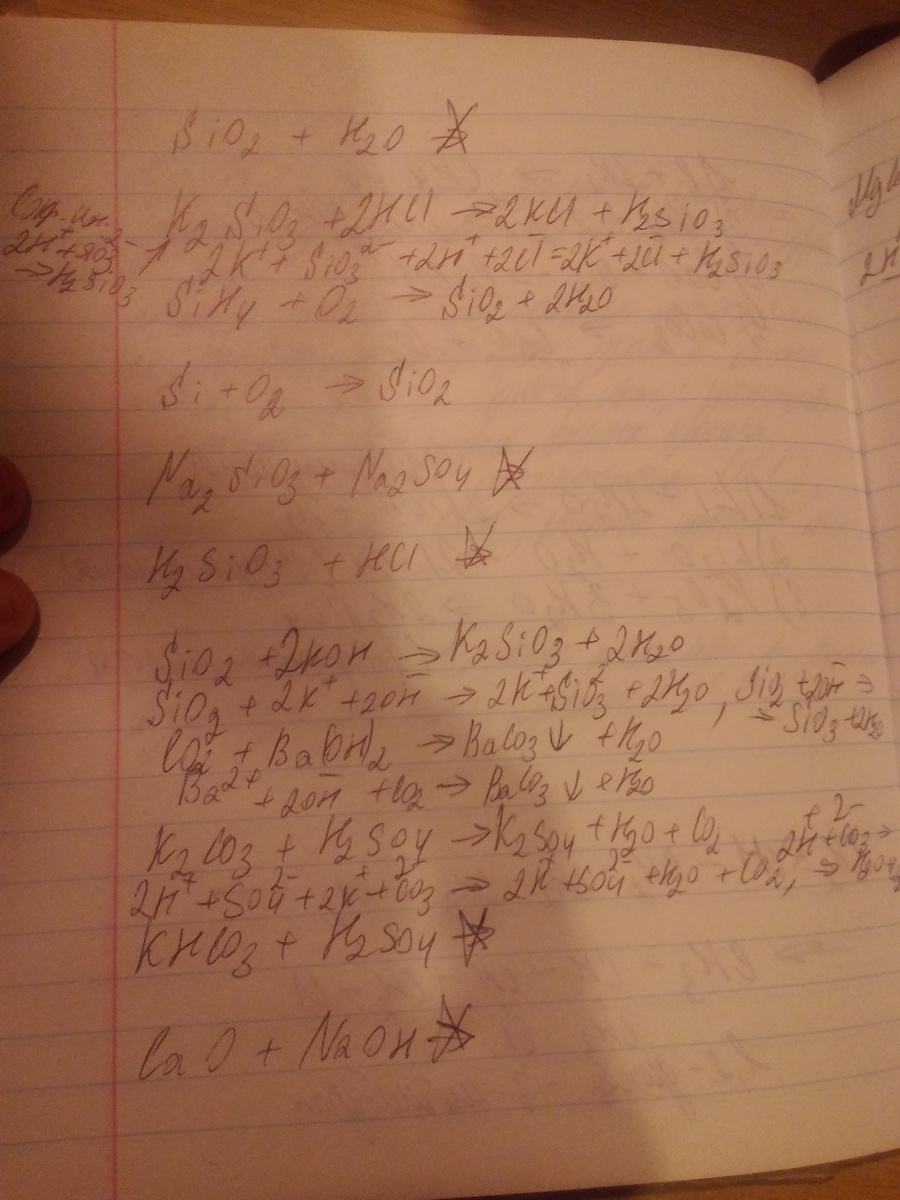 SiO₂ + H₂O ↛
Сокр. ин.
2H⁺ + SiO₃²⁻
→ H₂SiO₃
K₂SiO₃ + 2HCl → 2KCl + H₂SiO₃
2K⁺ + SiO₃²⁻ + 2H⁺ + 2Cl⁻ = 2K⁺ + 2Cl⁻ + H₂SiO₃
SiH₄ + O₂ → SiO₂ + 2H₂O
Si + O₂ → SiO₂
Na₂SiO₃ + Na₂SO₄ ↛
H₂SiO₃ + HCl ↛
SiO₂ + 2KOH → K₂SiO₃ + 2H₂O
SiO₂ + 2K⁺ + 2OH⁻ → 2K⁺ + SiO₃²⁻ + 2H₂O, SiO₂ + 2OH⁻ →
→ SiO₃ + 2H₂O
CO₂ + Ba(OH)₂ → BaCO₃↓ + H₂O
Ba²⁺ + 2OH⁻ + CO₂ → BaCO₃↓ + H₂O
K₂CO₃ + H₂SO₄ → K₂SO₄ + H₂O + CO₂
2H⁺ + CO₃²⁻ →
2H⁺ + SO₄²⁻ + 2K⁺ + CO₃²⁻ → 2K⁺ + SO₄²⁻ + H₂O + CO₂, → H₂O +
KHCO₃ + H₂SO₄ ↛
CaO + NaOH ↛